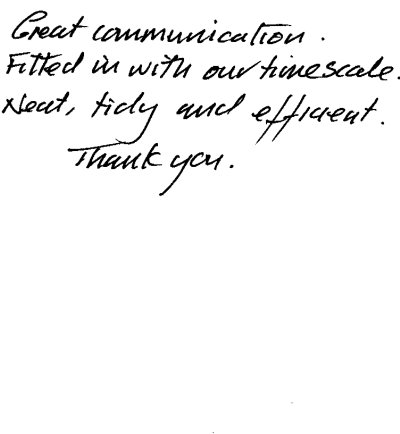 Great communication.
Fitted in with our timescale.
Neat, tidy and efficient.
Thank you.